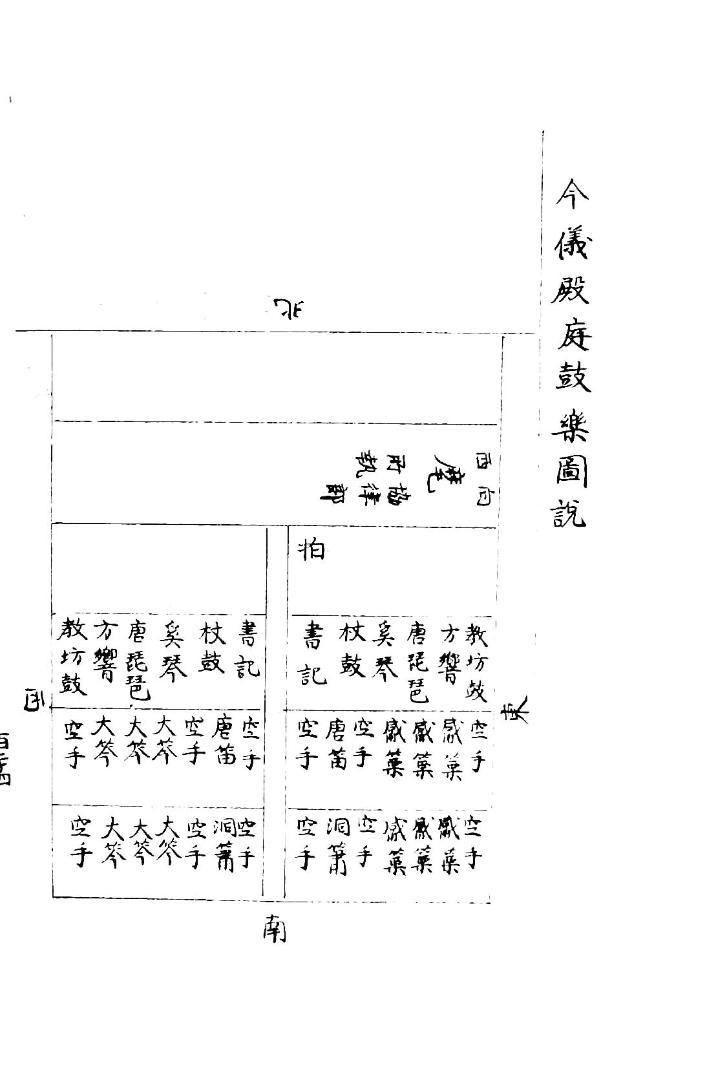 今儀殿庭鼓樂圖說
北
協律郎
所執
麾
西向
拍
教坊鼓
方響
唐琵琶
奚琴
杖鼓
書記
書記
杖鼓
奚琴
唐琵琶
方響
教坊鼓
東
西
空手
觱篥
觱篥
觱篥
空手
唐笛
空手
空手
唐笛
空手
大笒
大笒
大笒
空手
空手
觱篥
觱篥
觱篥
空手
洞簫
空手
空手
洞簫
空手
大笒
大笒
大笒
空手
南